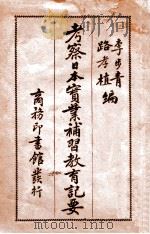 李步青
路孝植
編
考察日本實業補習教育記要
商務印書館發行